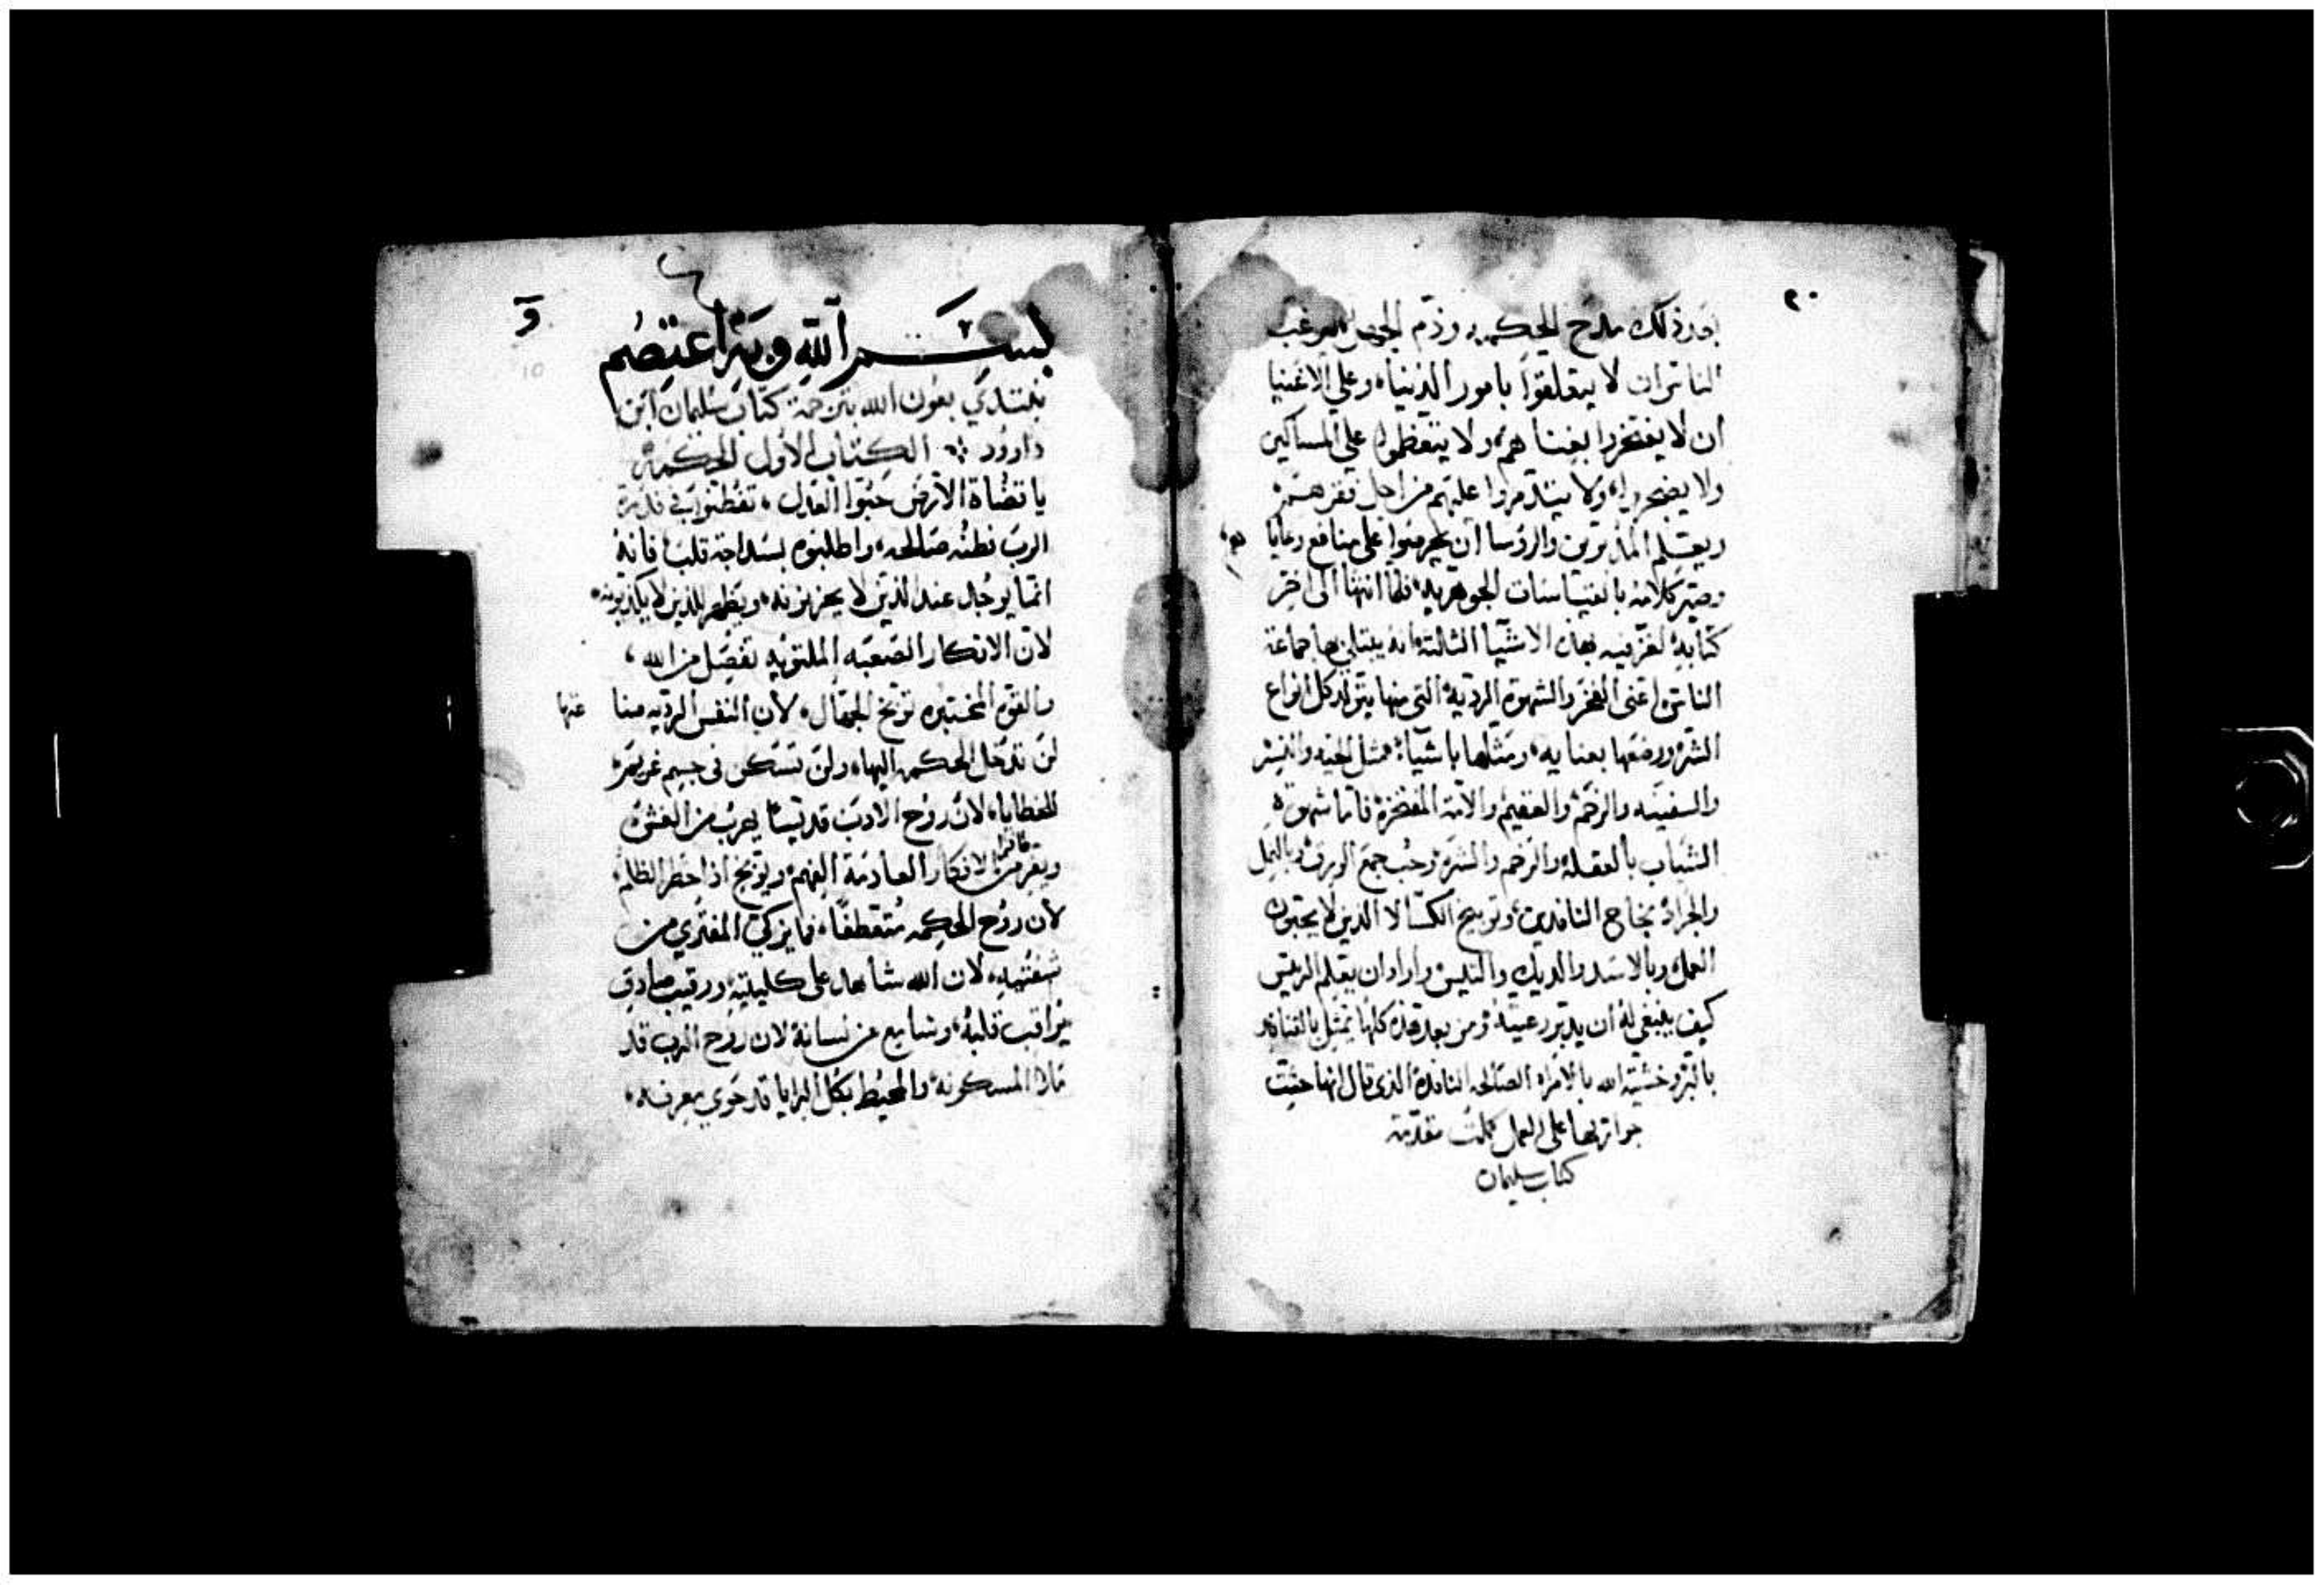 ٢٠
بعد ذلك مدح الحكمه وذم الجهل ليرغب
الناس ان لا يتعلقوا بامور الدنيا، وعلي الاغنيا
ان لا يفتخروا بغناهم، ولا يتعظموا علي المساكين
ولا يضجروا، ولا يتذمروا عليهم من اجل فقرهم
ويعلم والرؤسا ان يحرصوا علي منافع رعايا
هم،
وصير كلامه بالقياسات الجوهريه، فلما انتها الى اخر
كتابه لغز فيه بهذه الاشيا الثالثه انه يبتلي بها جماعة
الناس، اعنى الفخر والشهوه الرديه التى منها يتولد كل انواع
الشر ووضعها بعنايه، ومثلها باشيآ، مثل الحيه والنسر
والسفينه والرخم والعقيم والامة المفتخره فاما شهوة
الشباب بالعقله والرخم والشره وحب جمع الورق وبالنمل
والجراد نجاح النافدين، وتوبيخ الكسالا الذين لا يحبون
العمل وبالاسد والديك والتيس واراد ان يعلم الريس
كيف ينبغي له ان يدبر رعيته، ومن بعد هذه كلها تمثل بالقناعه
بالبر وخشية الله بالامراه الصالحه النافده الذى قال انها حثيت
جوارتها على العمل كملت مقدمة
كتاب سليمان
وَ
10
بسم الله وبه اعتصم
نبتدي بعون الله بترجمة كتاب سليمان ابن
داوود الكتاب الاول الحكمة
يا قضاة الارض حبوا العدل، تفطنوا في قدرة
الرب فطنه صالحه، واطلبوه بسداجة قلب فانه
انما يوجد عند الذين لا يحزنونه، ويظهر للذين لا يكذبونه،
لان الافكار الصعبه الملتويه تفصل من الله،
والقوه المختبره توبخ الجهال، لان النفس الرديه صنا
عتها
لن تدخل الحكمه اليها، ولن تسكن في جسم غريمه
للخطايا، لان روح الادب قديسا يهرب من الغش،
ويفر من الافكار العادمة الفهم، ويوبخ اذا حضر الظلم،
لان روح الحكمه متعطفا، فما يزكي المفتري من
شفتيه، لان الله شاهد على كليتيه، ورقيب صادق
يراقب قلبه، وسامع من لسانه لان روح الرب قد
ملا المسكونه، والمحيط بكل البرايا قد حوي معرفه،